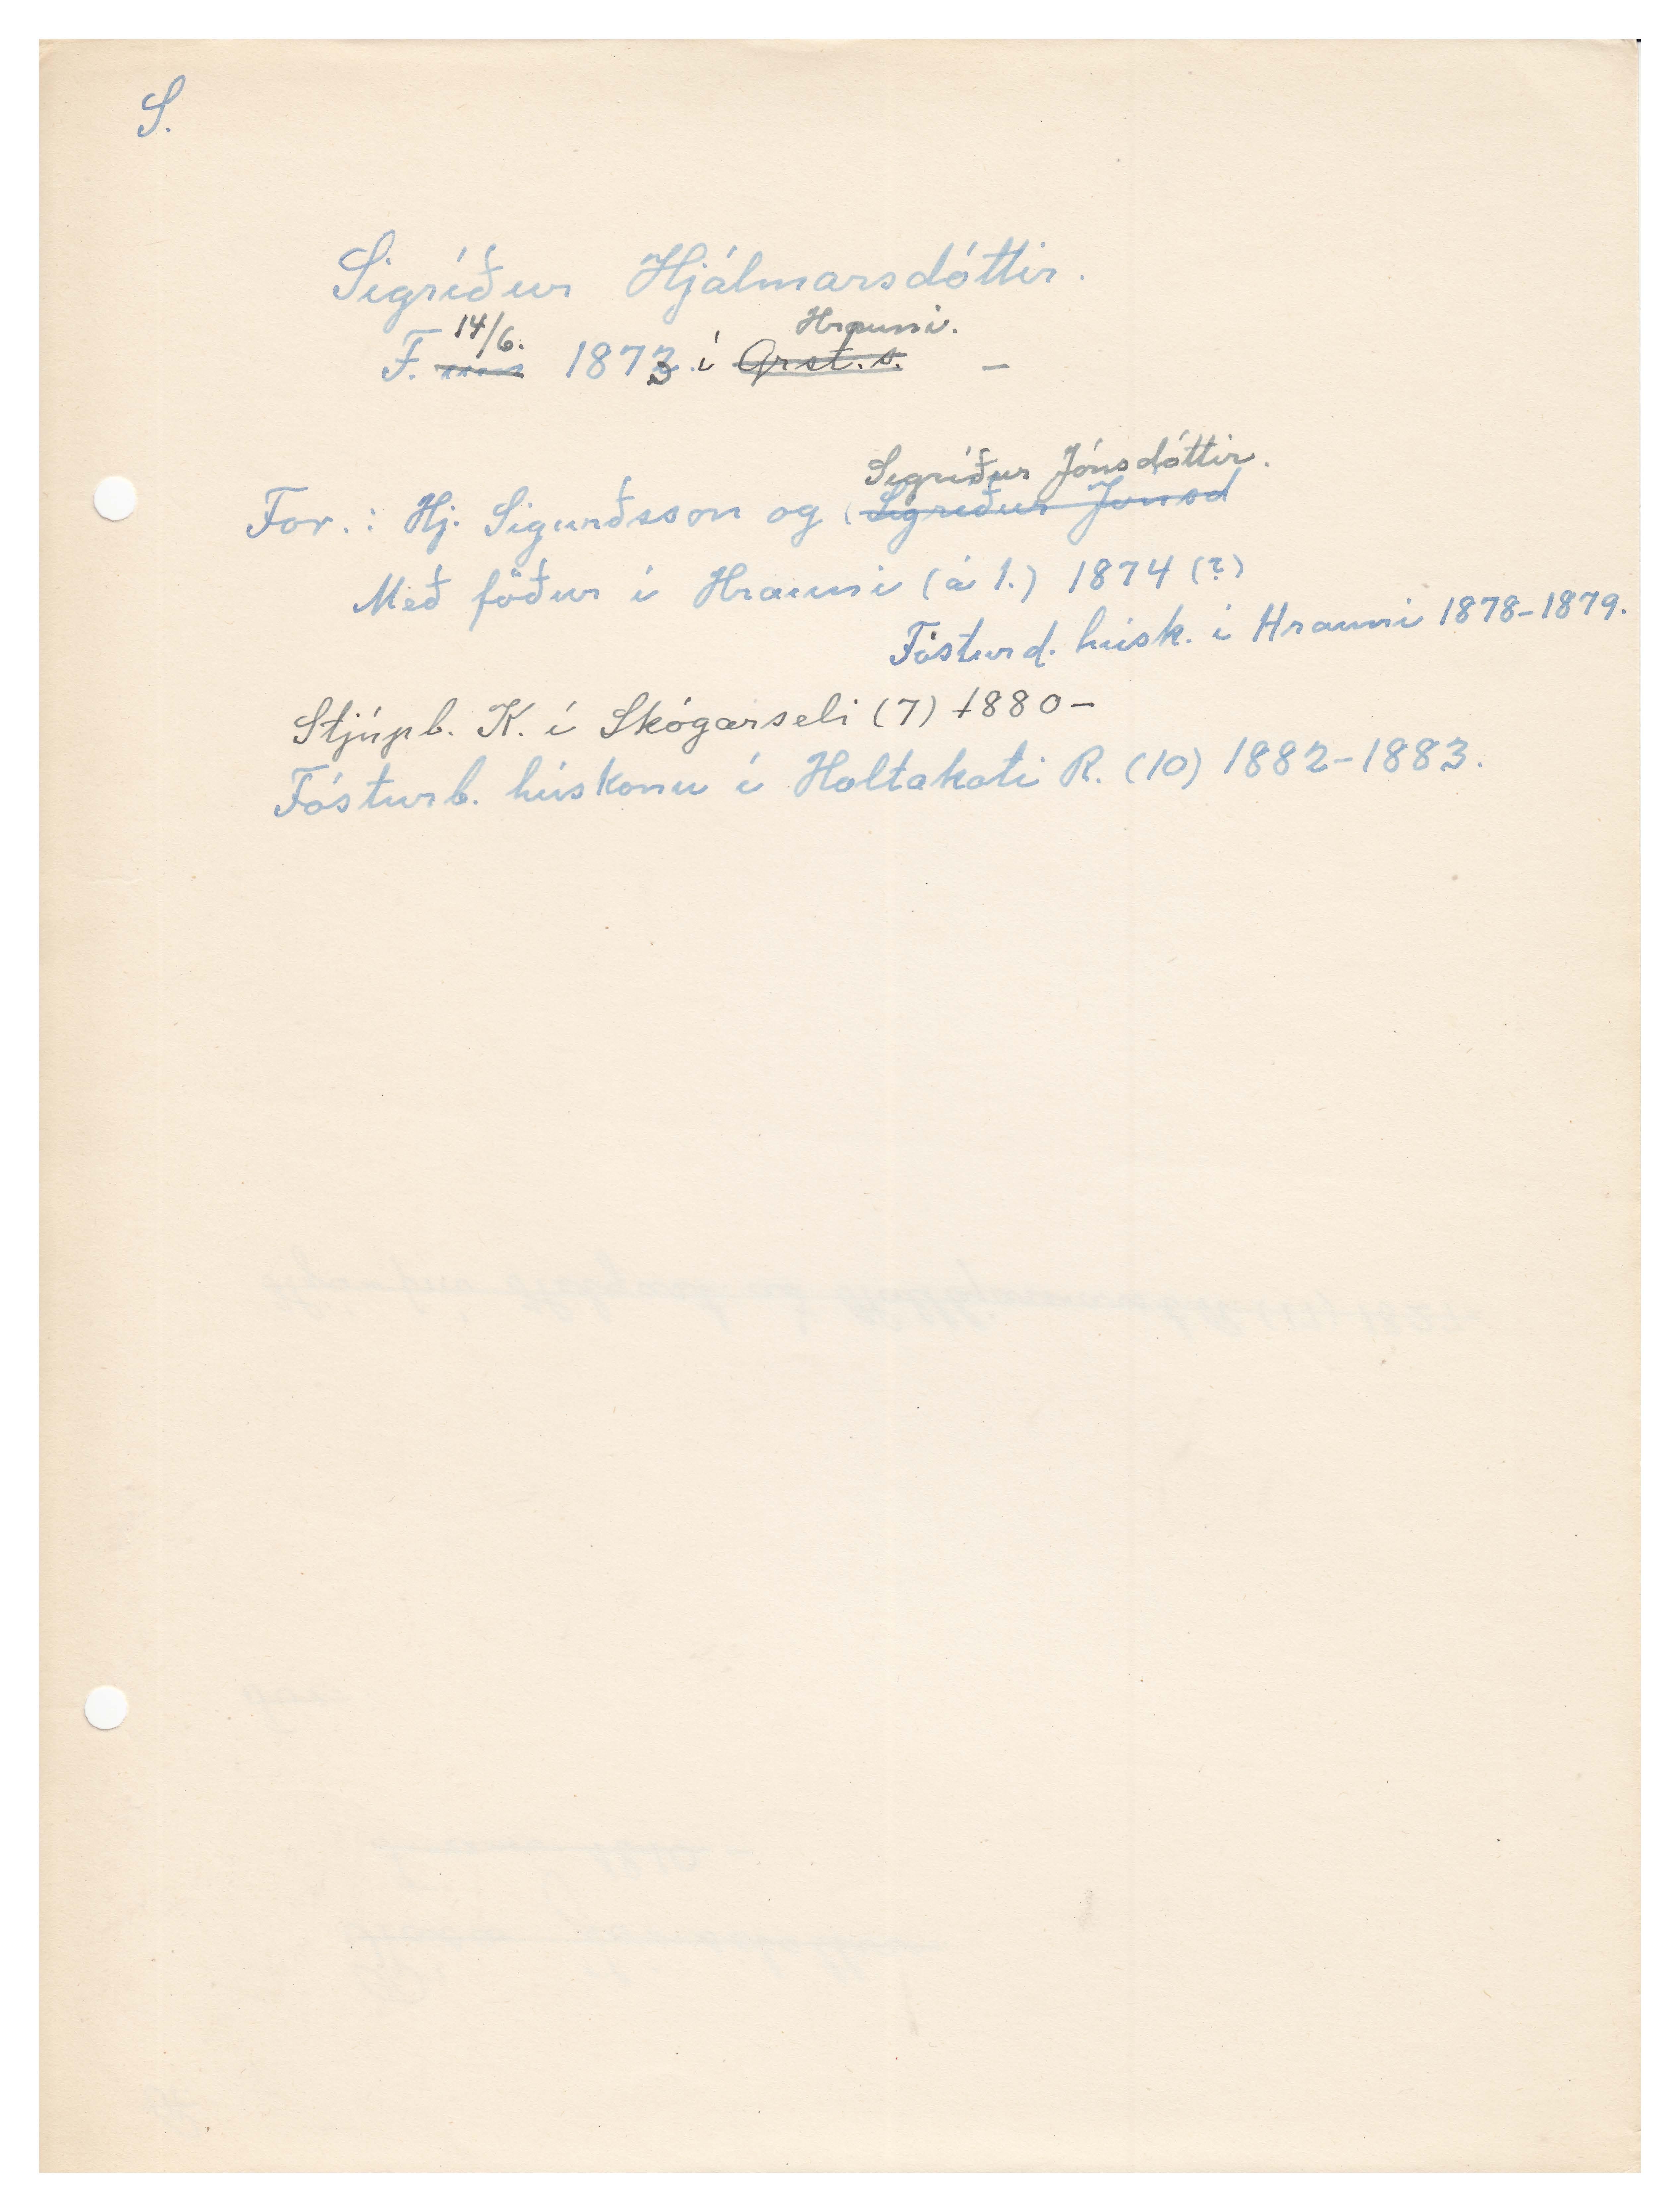 S.
Sigríður Hjálmarsdóttir.
14/6. Hrauni.
F. 1873 í Grst.s. –
Sigríður Jónsdóttir.
For.: Hj. Sigurðsson og (Sigríður Jónsd
Með föður í Hrauni (á 1.) 1874 (?)
Fósturd. húsk. í Hrauni 1878-1879.
Stjúpb. K. í Skógarseli (7) 1880-
Fósturb. húskonu í Holtakoti R. (10) 1882-1883.